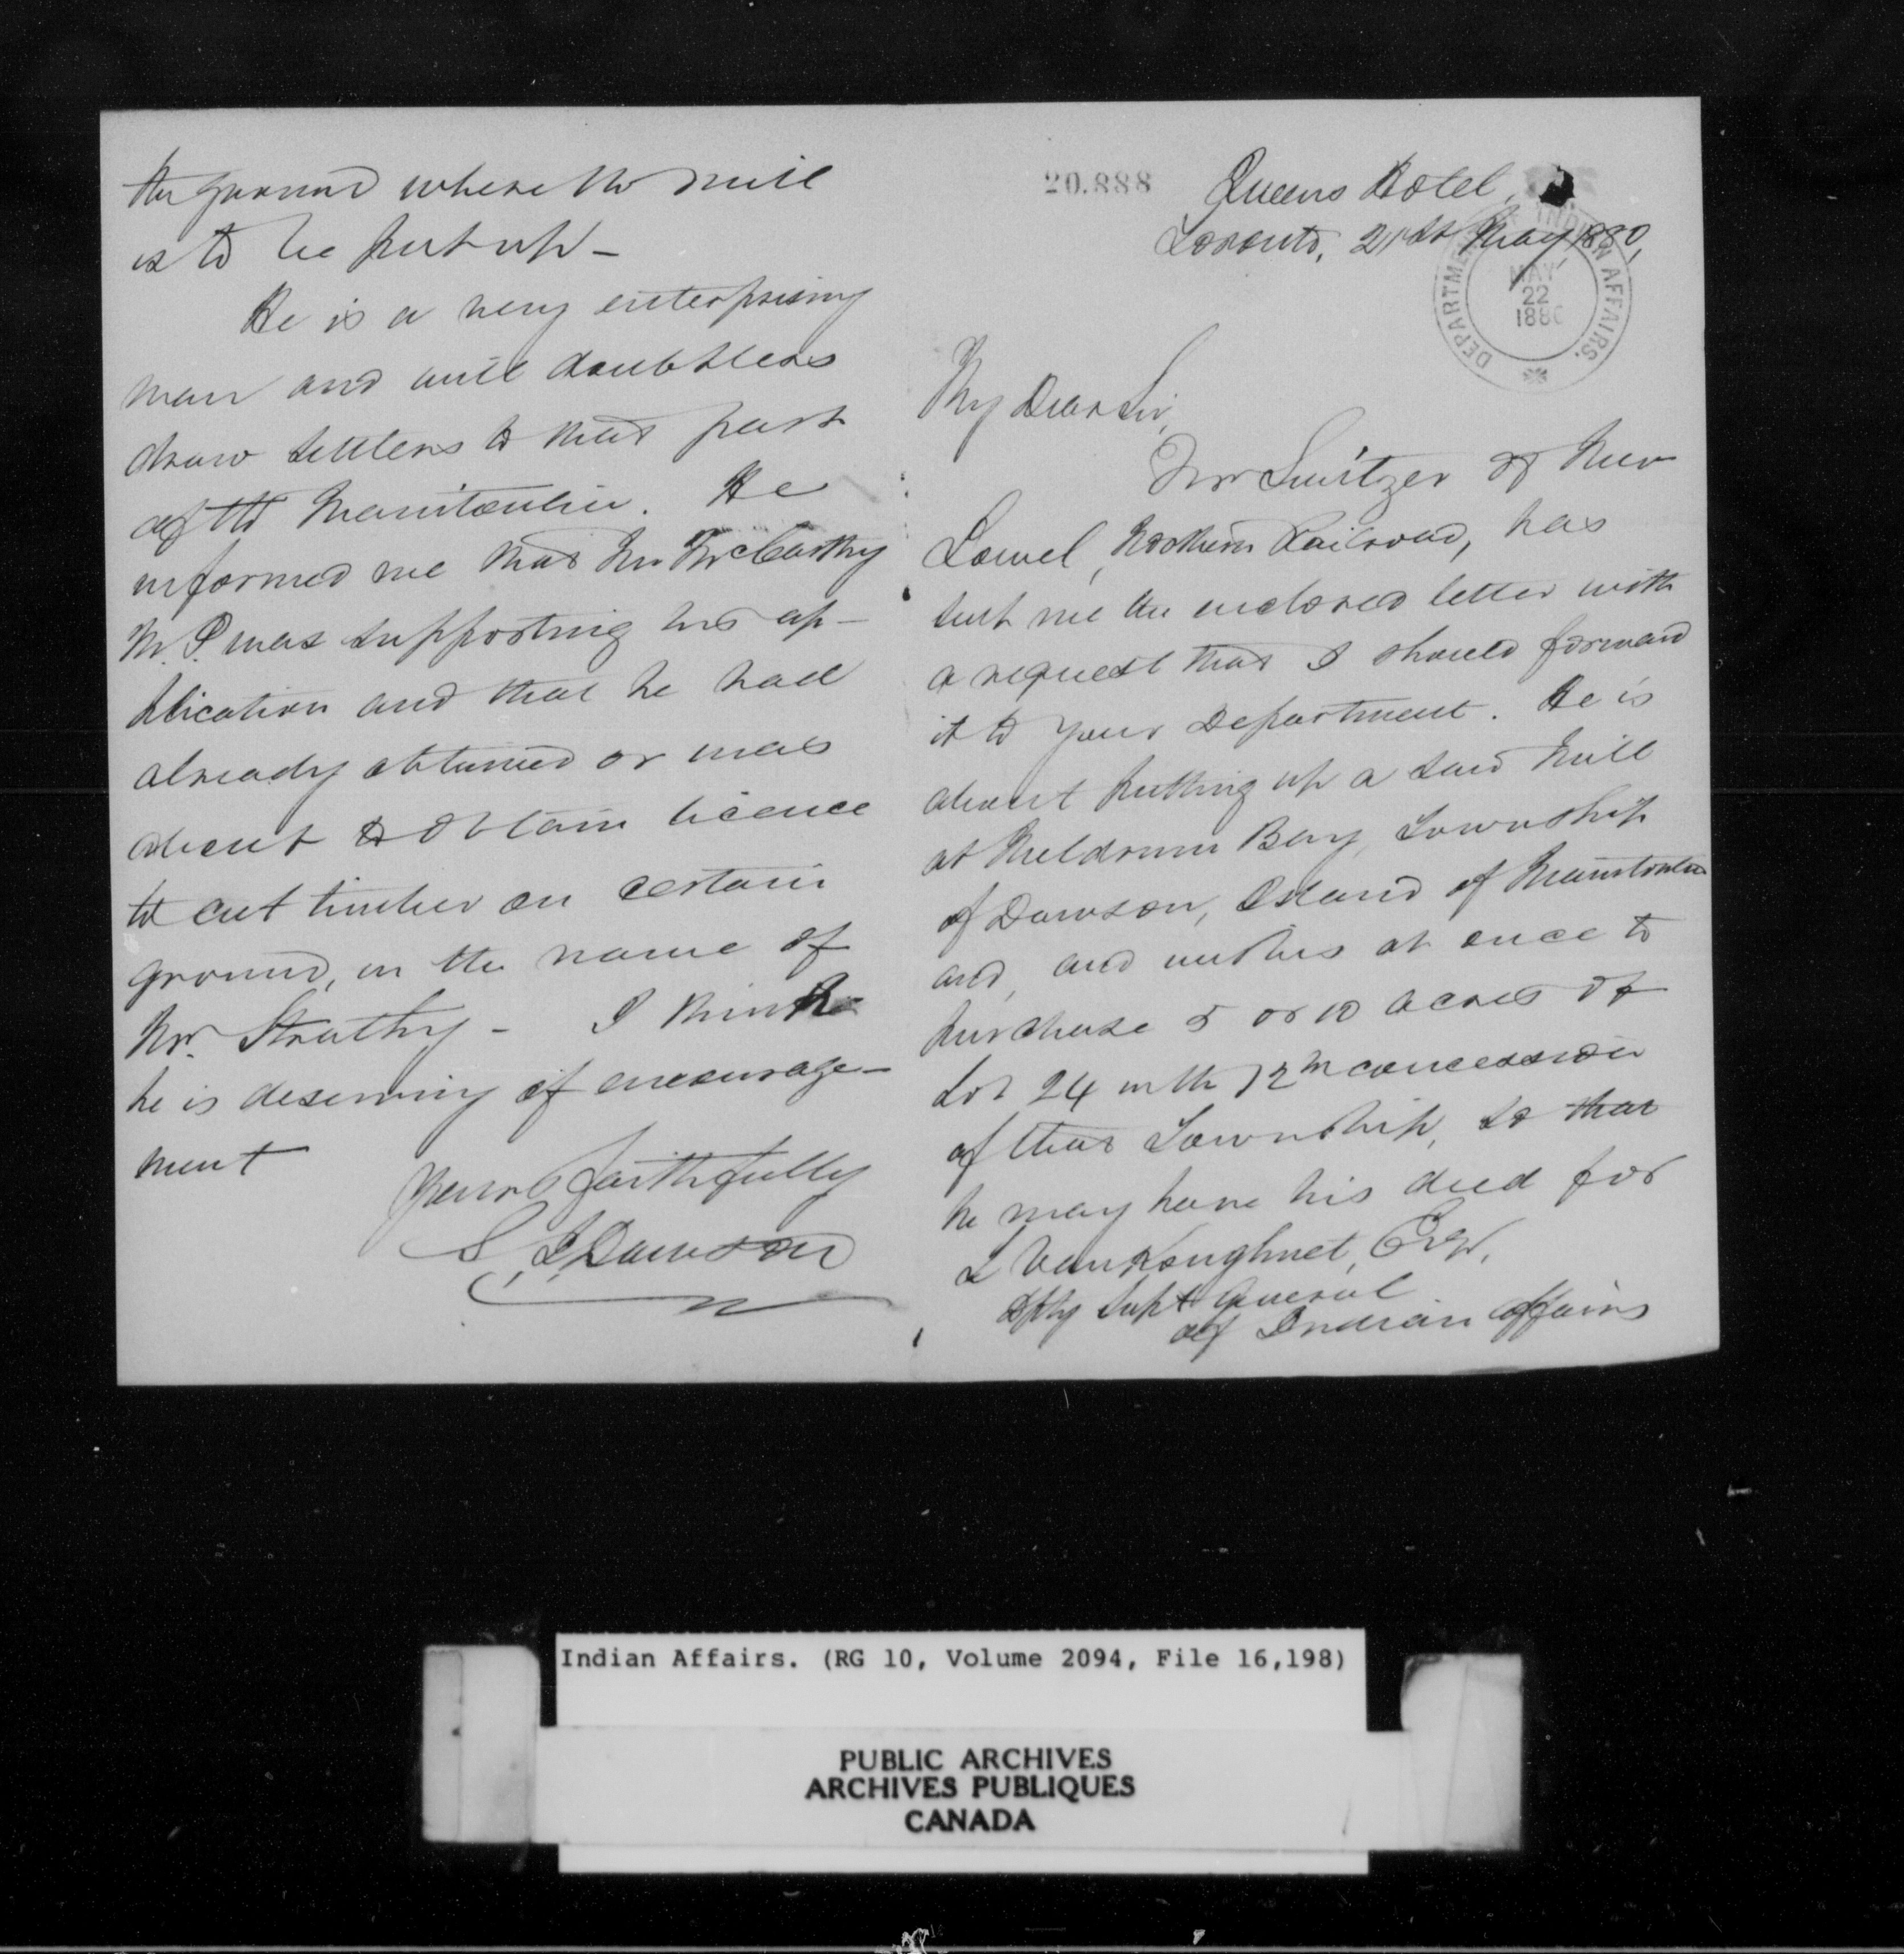 20.888
Queens Hotel,
Toronto, 21st May, 1880,
DEPARTMENT OF INDIAN AFFAIRS.
MAY
22
1880
My Dear Sir,
Mr Switzer of New
Lowel, Northern Railroad, has
sent me the enclosed letter with
a request that I should forward
it to your Department. He is
about putting up a saw mill
at Meldrum Bay, Township
of Dawson, Island of Manitoulin
and, and wishes at once to
purchase 5 or 10 acres of
Lot 24 in the 12th concession
of that Township, so that
he may have his deed for
L VanKoughnet, Esqr,
Dpty Supt General
of Indian Affairs
the ground where the mill
is to be put up –
He is a very enterprising
man and will doubtless
draw settlers to that part
of the Manitoulin. He
informed me that Mr McCarthy
M.P. was supporting his ap-
plication and that he had
already obtained or was
about to obtain licence
to cut timber on certain
ground, in the name of
Mr. Strathy – I think
he is deserving of encourage-
ment
Yours faithfully
S. J. Dawson
Indian Affairs. (RG 10, Volume 2094, File 16,198)
PUBLIC ARCHIVES
ARCHIVES PUBLIQUES
CANADA